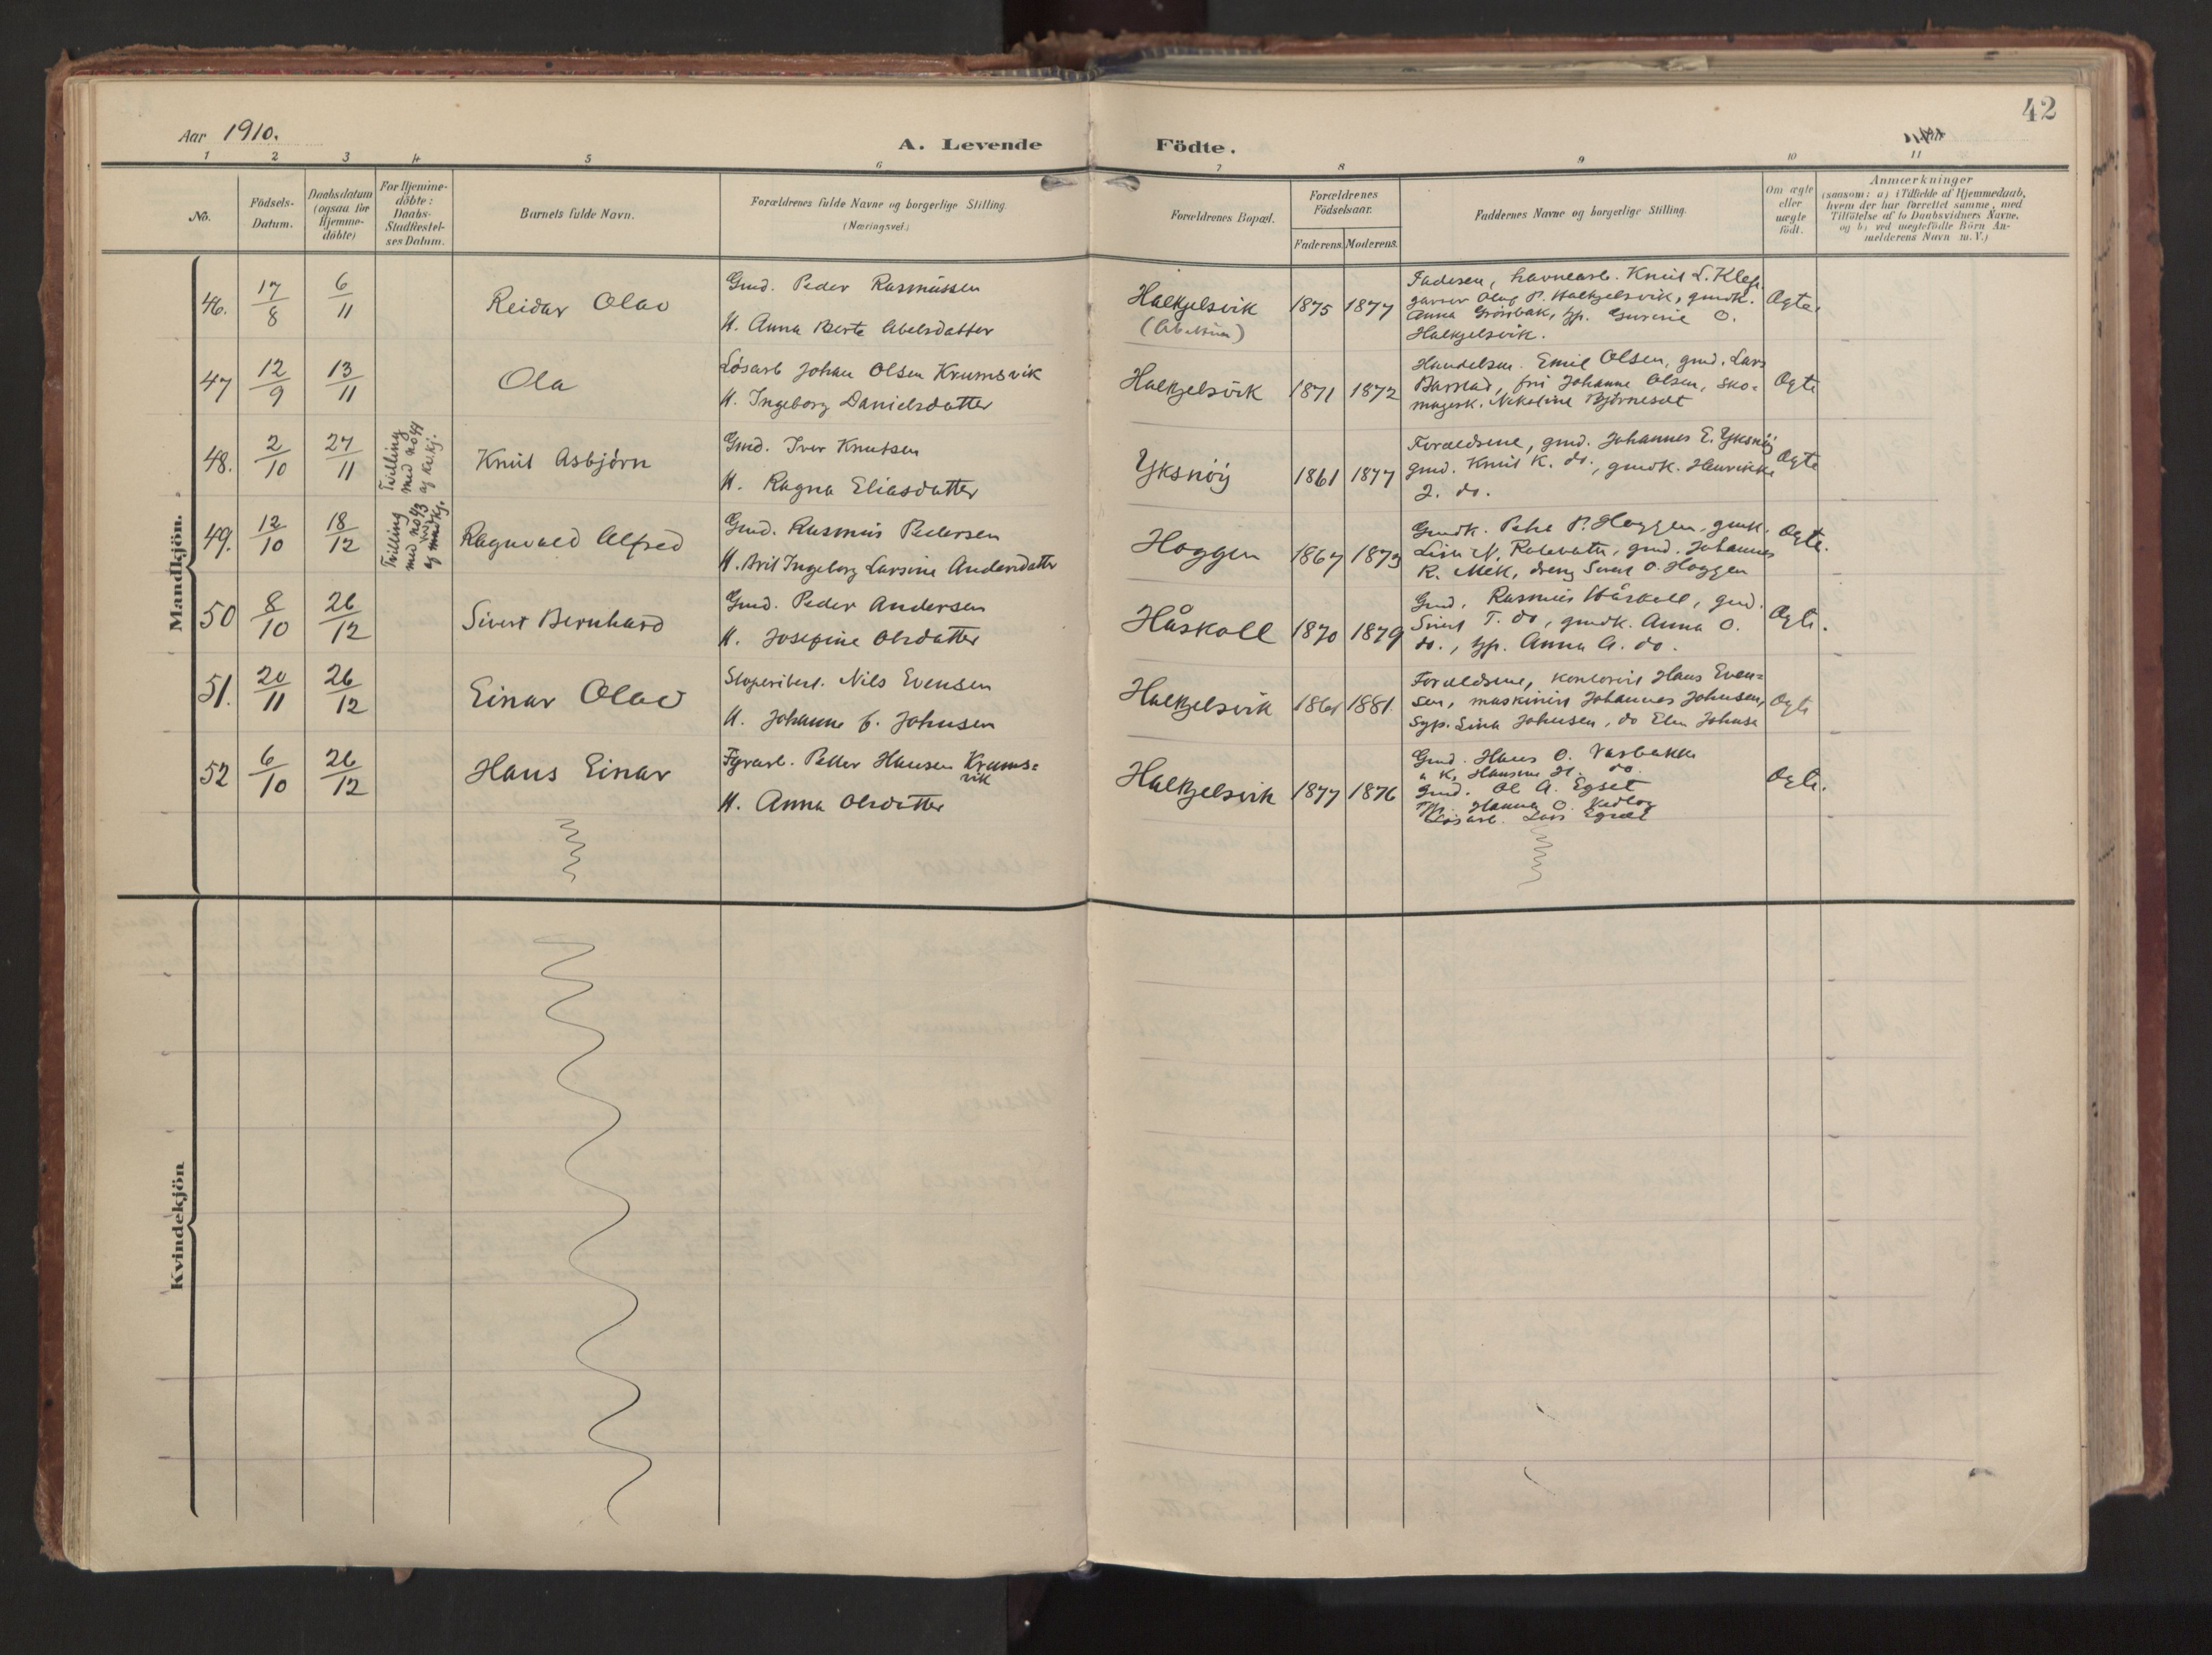 42
Aar 1910.
A. Levende Födte.
1 2 3 4 5 6 7 8 9 10 11
No.
Födsels-
Datum.
Daabsdatum
(ogsaa for
Hjemme-
döbte)
For Hjemme-
döbte:
Daabs-
Stadfæstel-
ses Datum.
Barnets fulde Navn.
Forældrenes fulde Navne og borgerlige Stilling.
(Næringsvei.)
Forældrenes Bopæl.
Forældrenes
Födselsaar.
Faderens. Moderens.
Faddernes Navne og borgerlige Stilling.
Om ægte
eller
uægte
födt.
Anmærkninger
(saasom: a) i Tilfælde af Hjemmedaab,
hvem der har forrettet samme, med
Tilföielse af to Daabsvidners Navne.
og b) ved uægtefödte Börn An-
melderens Navn m. V.)
Mandkjön.
46. 17/8 6/11 Reidar Olav
Gmd. Peder Rasmussen
H. Anna Berte Abelsdatter
Halkjelsvik 1875 1877
Faderen, havnearb. Knut L. Klep.
garver Olaf P. Halkjelsvik, gmdk.
Anna Grönbak, yp. Gurine O.
Halkjelsvik.
Ægte.
47 12/9 13/11 Ola
Løsarb Johan Olsen Krumsvik
H. Ingeborg Danielsdatter
Halkjelsvik 1871 1872
Handelsm. Emil Olsen, gmd. Lars
Barstad, fru Johanne Olsen, sko-
magerk. Nikoline Björneset
Ægte
48. 2/10 27/11
Tvilling
med no 44
af kv.kj.
Knut Asbjörn
Gmd. Iver Knutsen
H. Ragna Eliasdatter
Yksnöy 1861 1877
Forældrene, gmd. Johannes E. Yksnöy
gmd. Knut K. do., gmdk. Henrikke
J. do.
Ægte
49. 12/10 18/12
Tvilling
med no 43
af kvkj.
Ragnvald Alfred
Gmd. Rasmus Pedersen
H. Brit Ingeborg Larsine Andersdatter
Hoggen 1867 1873
Gmdk. P. Hoggen, gmk.
N. gmd. Johannes
R. Mek, dreng Sivert O. Hoggen
Ægte.
50 8/10 26/12 Sivert Bernhard
Gmd. Peder Andersen
H. Josefine Olsdatter
Håskoll 1870 1879
Gmd. Rasmus Håskoll, gmd.
Sivert T. do, gmdk. Anna O.
do., yp. Anna A. do.
Ægte.
51. 20/11 26/12 Einar Olav
Nils Evensen
H. Johanne Johnsen
Halkjelsvik 1881
Forældrene, kontorist Hans Even=
sen, maskinist Johannes Johnsen,
Syp. Lina Johnsen, do Johnsen
Ægte
52 6/10 26/12 Hans Einar
Fyrarb. Petter Hansen Krums=
vik
H. Anna Olsdatter
Halkjelsvik 1877 1876
Gmd. Hans O. Vasbakke
" k. Hansine H. do.
gmd. Ol A. Egset
yp. Hanna O.
Løsarb. Lars Egset
Ægte.
Kvindekjön